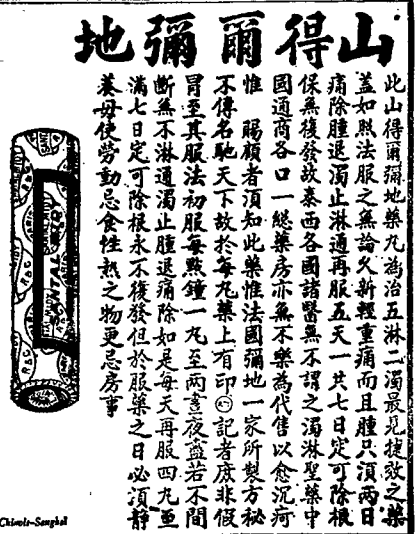 山得爾彌地
此山得爾彌地藥丸為治五淋二濁最見捷效之藥
蓋如照法服之無論久新輕重痛而且腫只須兩日
痛除腫退濁止淋通再服五天一共七日定可除根
保無復發故泰西各國諸醫無不謂之濁淋聖藥中
國通商各口一縂藥房亦無不樂為代售以愈沉疴
惟 賜顧者須知此藥惟法國彌地一家所製方秘
不傳名馳天下故於每丸藥上有印記者庶非假
冒至其服法初服每點鐘一丸至兩晝夜盡若不間
斷無不淋通濁止腫退痛除如是每天再服四丸重
滿七日定可除根永不復發但於服藥之日必須靜
養毋使勞動忌食性熱之物更忌房事
Chinois-Sanghaï